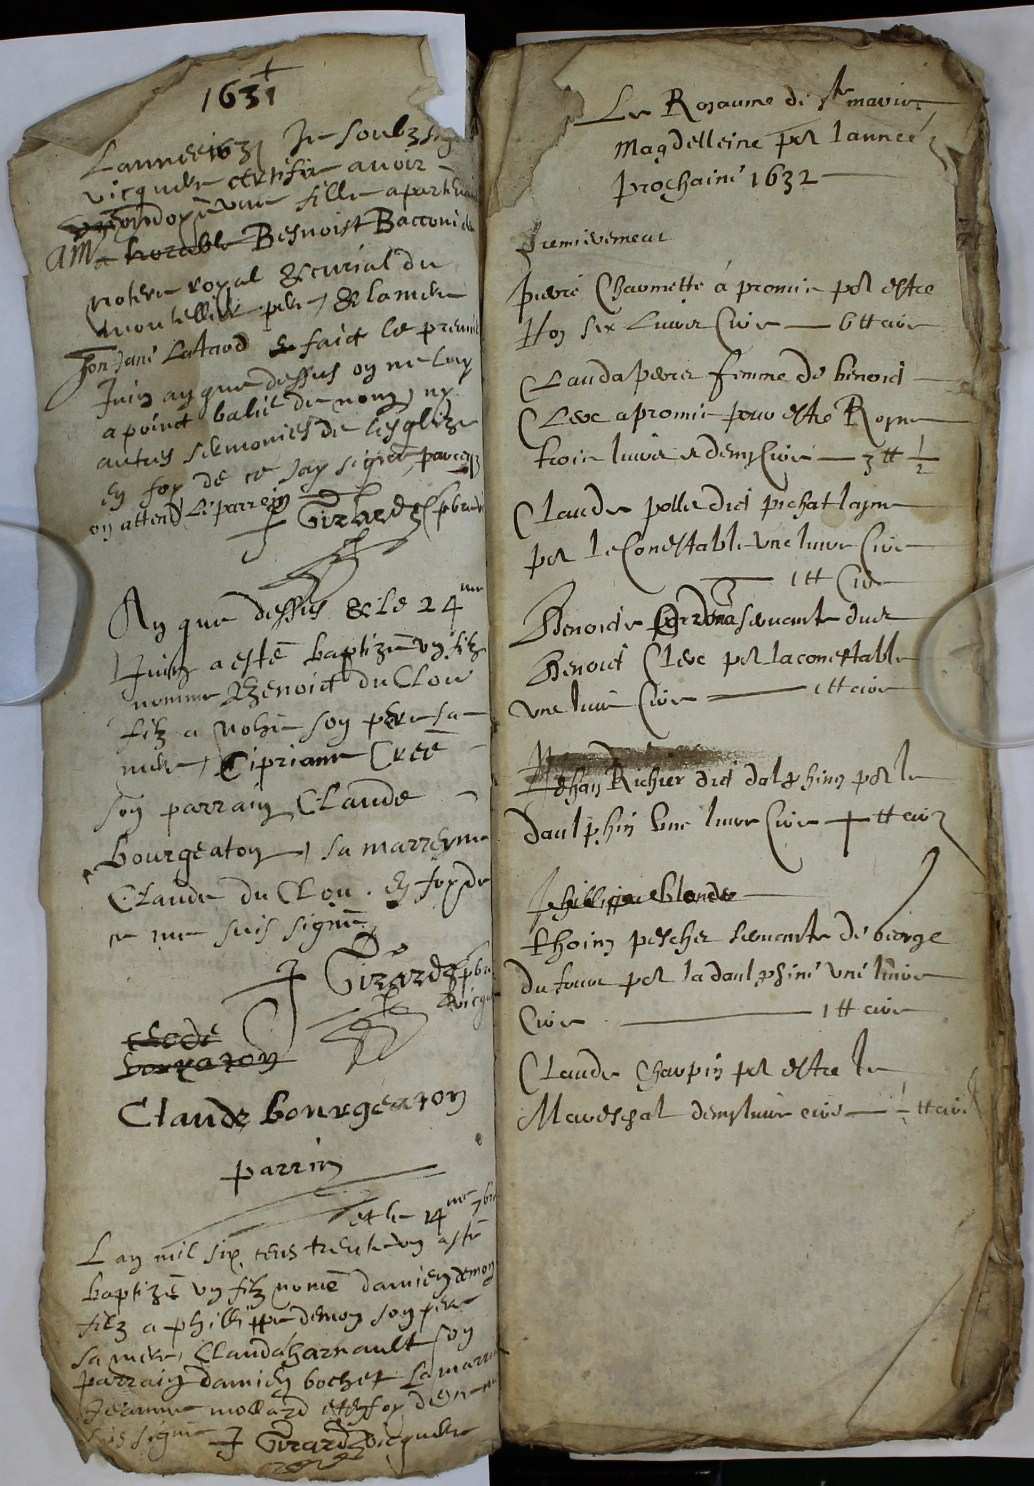 1631
L'annee 1631 Je soulz sig
vicquere certifie avoir
ondoye une fille apartenan
AM a honorable Besnoist Bacconi
notere royal & curial du
montellier pere & la mere
Jane Lataud & faict le premie
Juin an que dessus on ne luy
a point balié de nom ny
autres sermonies de l'esglize
en foy de ce jay signé, parce q
on attend le parrein
J Girardz pbre
An que dessus & le 24me
Juin a esté baptizé un filz
nommé Benoict du Clou
filz a Nohe son pere sa
mere, Cipriane Creé
son parrain Claude
bourgeaton, sa marreyne
Claude du Clou. En foy de
ce me suis signé
J Girardz pbre
vicque
clode
borgaton
Claude bourgeaton
parrin
et le 14me 7bre
L'an mil six cens trente un a esté
baptizé un filz nomé damien demon
filz a phillippe demon son pere
sa mere, Clauda harnault son
parrain damien bochet la marr
Jeanne mollard et en foy de
suis signé J Girardz vicquere
Le Royaume de Ste marie
Magdelleine por l'année
prochaine 1632
Premierement
pierre Chaumette a promis por estre
Roy six livres Cire — 6 tt cire
Clauda femme de benoict
Clerc a promis pour estre Royne
trois livres & demy Cire — 3 tt ½
Claude polle dict pichat layne
por le Conestable une livre Cire
— 1 tt Cire
Benoiste servante dud
Benoict Clerc por la conestable
une livre Cire — 1 tt cire
Jehan Richier dict dalphin por le
daulphin une livre Cire — 1 tt cire
phillippe blonde
thoine pescher servante de george
du four por la daulphine une livre
Cire — 1 tt cire
Claude Charpin por estre le
Mareschal demy livre cire — ½ tt cire